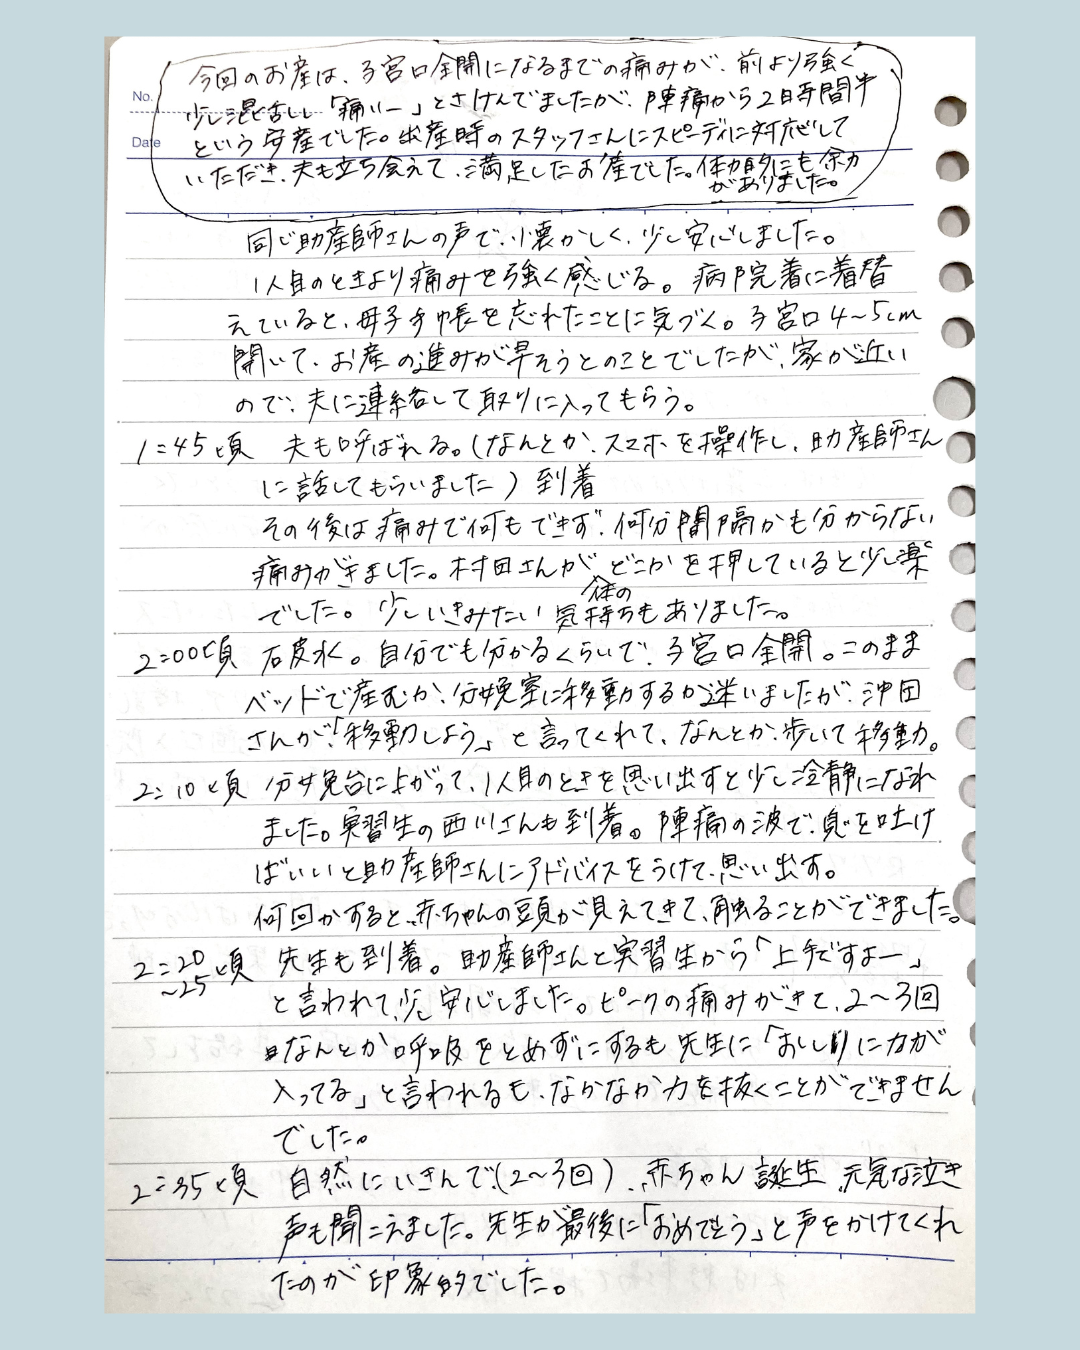 No.
Date
今回のお産は、子宮口全開になるまでの痛みが、前より強く
少し混乱し「痛いー」とさけんでましたが、陣痛から2時間半
という安産でした。出産時のスタッフさんにスピーディに対応して
いただき、夫も立ち会えて、満足したお産でした。体力的にも余力
がありました。
同じ助産師さんの声で、懐かしく、少し安心しました。
1人目のときより痛みを強く感じる。病院着に着替
えていると、母子手帳を忘れたことに気づく。子宮口4〜5cm
開いて、お産の進みが早そうとのことでしたが、家が近い
ので、夫に連絡して取りに入ってもらう。
1:45頃 夫も呼ばれる。(なんとか、スマホを操作し、助産師さん
に話してもらいました)到着
その後は痛みで何もできず、何分間隔かも分からない
痛みがきました。村田さんがどこかを押していると少し楽
でした。少しいきみたい体の気持ちもありました。
2:00頃 破水。自分でも分かるくらいで、子宮口全開。このまま
ベッドで産むか、分娩室に移動するか迷いましたが、沖田
さんが、「移動しよう」と言ってくれて、なんとか、歩いて移動。
2:10頃 分娩台に上がって、1人目のときを思い出すと少し冷静になれ
ました。実習生の西川さんも到着。陣痛の波で、息を吐け
ばいいと助産師さんにアドバイスをうけて、思い出す。
何回かすると、赤ちゃんの頭が見えてきて、触ることができました。
2:20〜25頃 先生も到着。助産師さんと実習生から「上手ですよー」
と言われて、少し安心しました。ピークの痛みがきて、2〜3回
なんとか呼吸をとめずにするも先生に「おしりに力が
入ってる」と言われるも、なかなか力を抜くことができません
でした。
2:35頃 自然にいきんで、(2〜3回)、赤ちゃん誕生、元気な泣き
声も聞こえました。先生が最後に「おめでとう」と声をかけてくれ
たのが印象的でした。